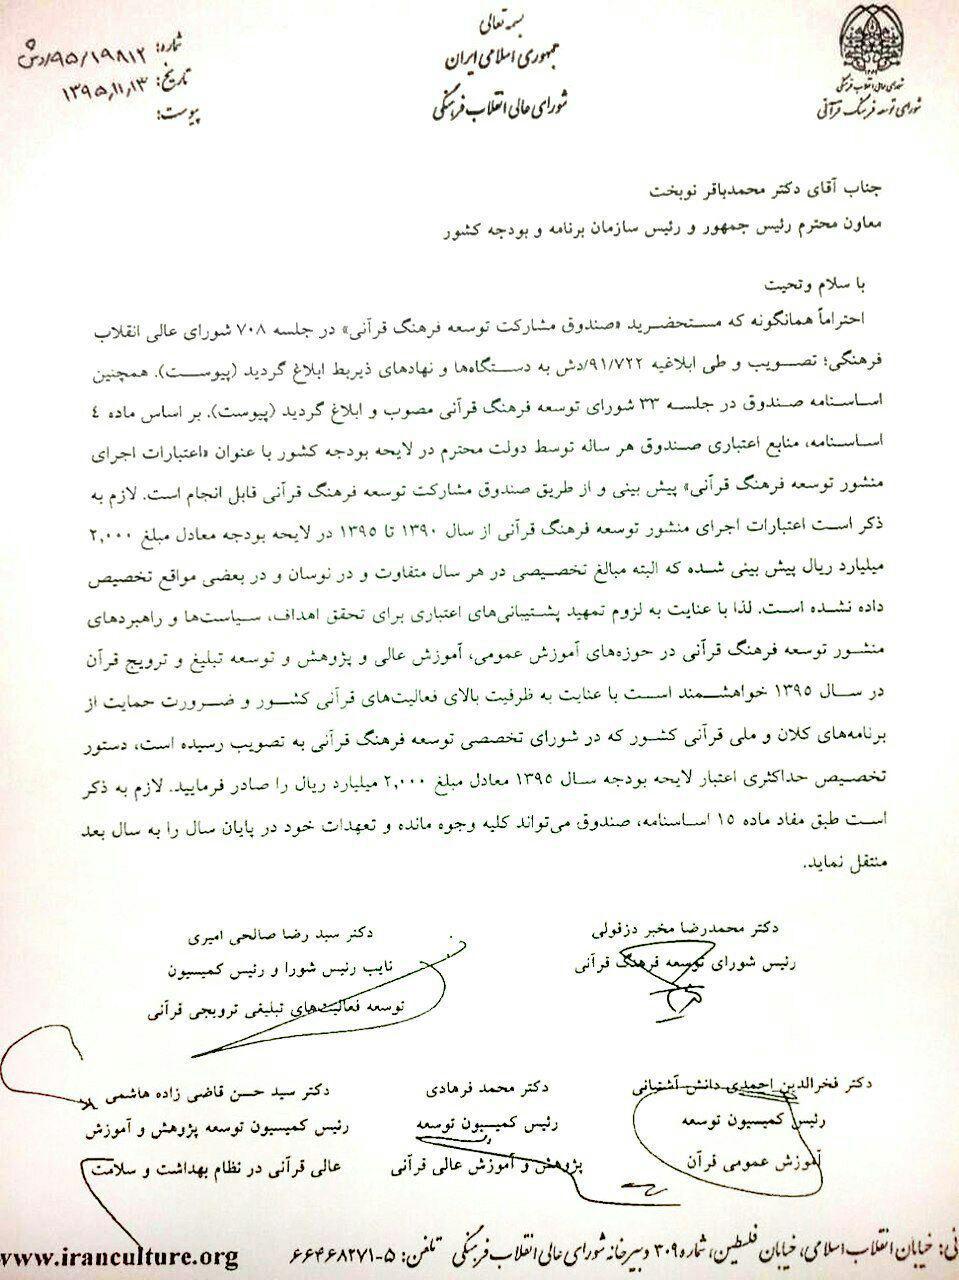 بسمه تعالی
جمهوری اسلامی ایران
شورای عالی انقلاب فرهنگی
شورای عالی انقلاب فرهنگی
شورای توسعه فرهنگ قرآنی
شماره: ۹۵/۱۹۸۱۲/دش
تاریخ: ۱۳۹۵,۱۱,۱۳
پیوست:
جناب آقای دکتر محمدباقر نوبخت
معاون محترم رئیس جمهور و رئیس سازمان برنامه و بودجه کشور
با سلام وتحیت
احتراماً همانگونه که مستحضرید «صندوق مشارکت توسعه فرهنگ قرآنی» در جلسه ۷۰۸ شورای عالی انقلاب
فرهنگی؛ تصویب و طی ابلاغیه ۹۱/۷۲۲/دش به دستگاه‌ها و نهادهای ذیربط ابلاغ گردید (پیوست). همچنین
اساسنامه صندوق در جلسه ۳۳ شورای توسعه فرهنگ قرآنی مصوب و ابلاغ گردید (پیوست). بر اساس ماده ٤
اساسنامه، منابع اعتباری صندوق هر ساله توسط دولت محترم در لایحه بودجه کشور با عنوان «اعتبارات اجرای
منشور توسعه فرهنگ قرآنی» پیش بینی و از طریق صندوق مشارکت توسعه فرهنگ قرآنی قابل انجام است. لازم به
ذکر است اعتبارات اجرای منشور توسعه فرهنگ قرآنی از سال ۱۳۹۰ تا ۱۳۹۵ در لایحه بودجه معادل مبلغ ۲,۰۰۰
میلیارد ریال پیش بینی شده که البته مبالغ تخصیصی در هر سال متفاوت و در نوسان و در بعضی مواقع تخصیص
داده نشده است. لذا با عنایت به لزوم تمهید پشتیبانی‌های اعتباری برای تحقق اهداف، سیاست‌ها و راهبردهای
منشور توسعه فرهنگ قرآنی در حوزه‌های آموزش عمومی، آموزش عالی و پژوهش و توسعه تبلیغ و ترویج قرآن
در سال ۱۳۹۵ خواهشمند است با عنایت به ظرفیت بالای فعالیت‌های قرآنی کشور و ضرورت حمایت از
برنامه‌های کلان و ملی قرآنی کشور که در شورای تخصصی توسعه فرهنگ قرآنی به تصویب رسیده است، دستور
تخصیص حداکثری اعتبار لایحه بودجه سال ۱۳۹۵ معادل مبلغ ۲,۰۰۰ میلیارد ریال را صادر فرمایید. لازم به ذکر
است طبق مفاد ماده ۱۵ اساسنامه، صندوق می‌تواند کلیه وجوه مانده و تعهدات خود در پایان سال را به سال بعد
منتقل نماید.
دکتر محمدرضا مخبر دزفولی
رئیس شورای توسعه فرهنگ قرآنی
دکتر سید رضا صالحی امیری
نایب رئیس شورا و رئیس کمیسیون
توسعه فعالیت‌های تبلیغی ترویجی قرآنی
دکتر فخرالدین احمدی دانش آشتیانی
رئیس کمیسیون توسعه
آموزش عمومی قرآن
دکتر محمد فرهادی
رئیس کمیسیون توسعه
پژوهش و آموزش عالی قرآنی
دکتر سید حسن قاضی زاده هاشمی
رئیس کمیسیون توسعه پژوهش و آموزش
عالی قرآنی در نظام بهداشت و سلامت
خیابان انقلاب اسلامی، خیابان فلسطین، شماره ۳۰۹ دبیرخانه شورای عالی انقلاب فرهنگی تلفن: ۵-۶۶۴۶۸۲۷۱ www.iranculture.org